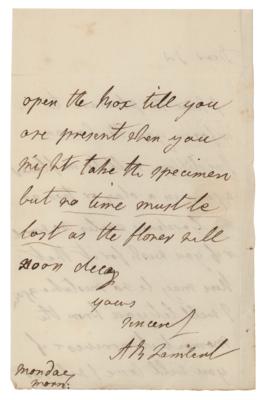 open the Box till you
are present when you
might take the specimen
but no time must be
lost as the flower will
soon decay
yours
sincerely
A B Lambert
Monday
morn: